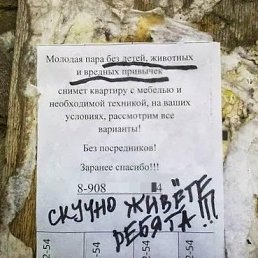 Молодая пара без детей, животных
и вредных привычек
снимет квартиру с мебелью и
необходимой техникой, на ваших
условиях, рассмотрим все
варианты!
Без посредников!
Заранее спасибо!!!
8-908 4
СКУЧНО ЖИВЁТЕ
РЕБЯТА!!!
2-54
2-54
2-54